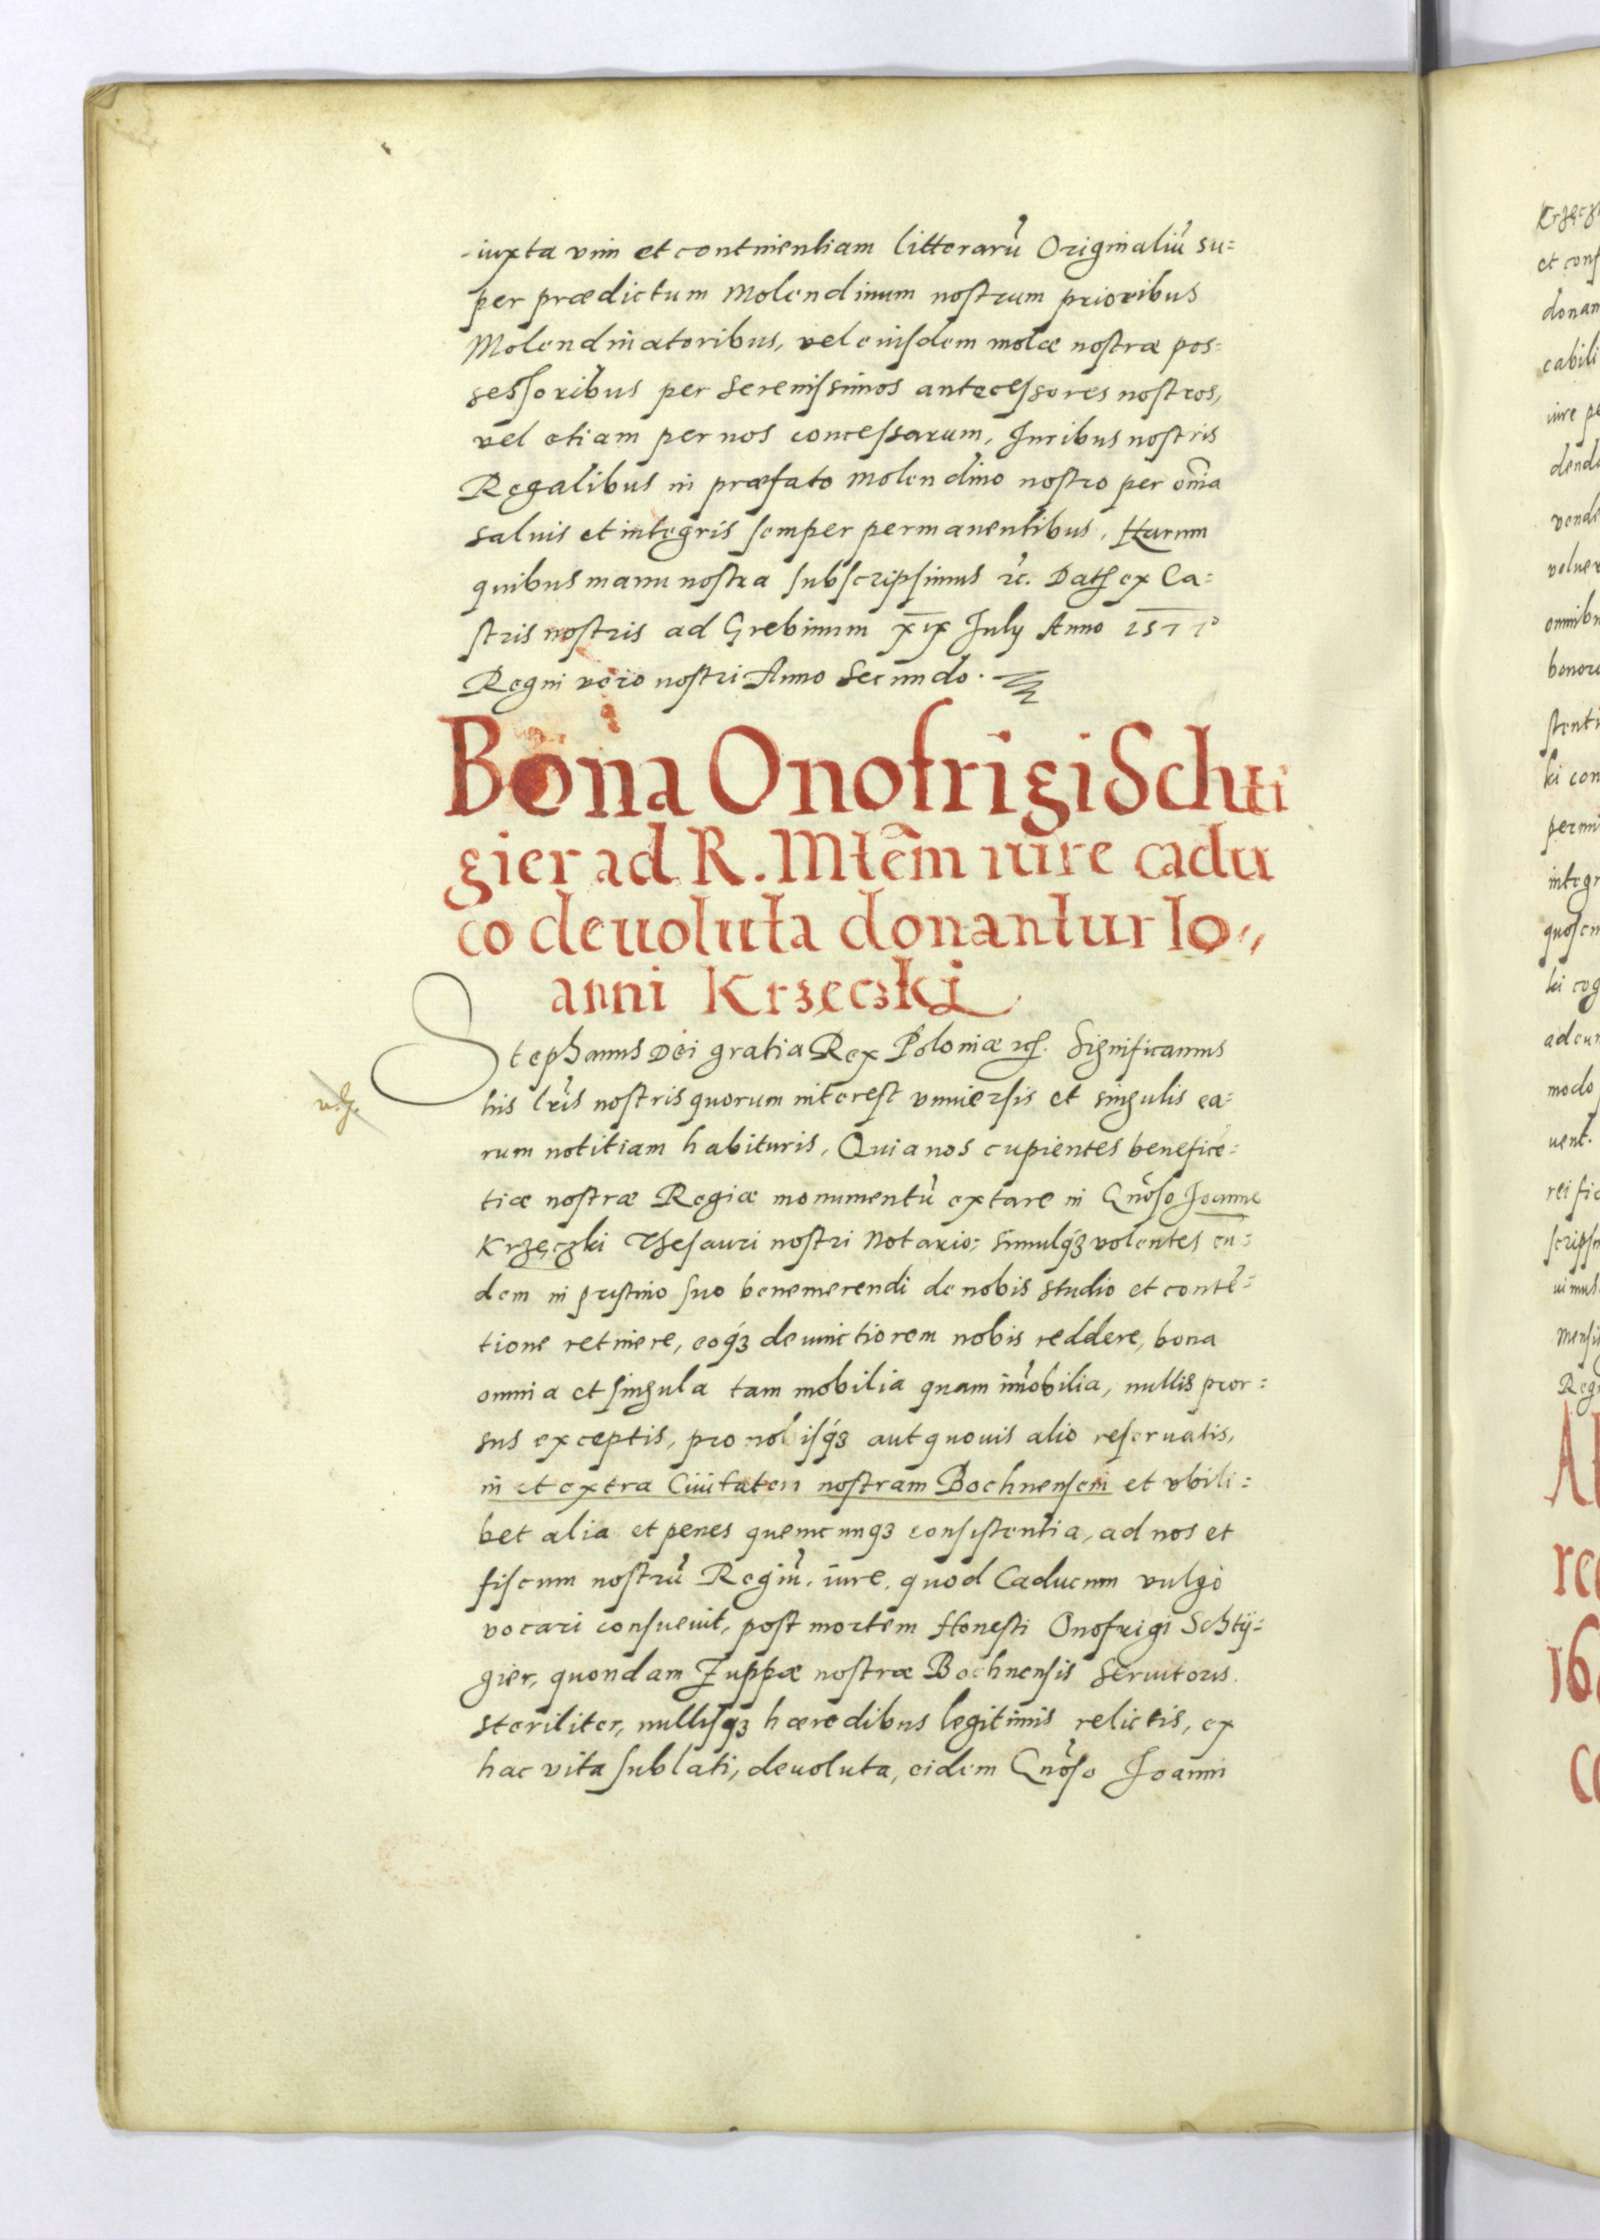 iuxta vim et continentiam litterarũ Originaliũ su=
per prædictum Molendinum nostrum prioribus
Molendinatoribus, vel eiusdem molæ nostræ pos=
sessoribus per Serenissimos antecessores nostros,
vel etiam per nos concessarum, Iuribus nostris
Regalibus in præfato Molendino nostro per oĩa
saluis et integris semper permanentibus, Harum
quibus manu nostra subscripsimus &c. Dat ex Ca=
stris nostris ad Grebinum xix July Anno 1577°
Regni vero nostri Anno Secundo.
Bona Onofrigi Schti
gier ad R. Mtẽm iure cadu
co deuoluta donantur Io,,
anni Krzeczki
Stephanus Dei gratia Rex Poloniæ &c. Significamus
his lr̃is nostris quorum interest vniuersis et singulis ea=
rum notitiam habituris, Quia nos cupientes benefice=
tiæ nostræ Regiæ monumentũ extare in Gñoso Joanne
Krzęczki Thesauri nostri Notario; simulq3 volentes eu=
dem in pristino suo benemerendi de nobis studio et contẽ=
tione retinere, eoq3 deuinctiorem nobis reddere, bona
omnia et singula tam mobilia quam im̃obilia, nullis pror=
sus exceptis, pro nobisq3 aut quouis alio reseruatis,
in et extra Ciuitatem nostram Bochnensem et vbili=
bet alia et penes quemcunq3 consistentia, ad nos et
fiscum nostrũ Regiũ, iure, quod Caducum vulgò
vocari consueuit, post mortem Honesti Onofrigi Schtÿ=
gier, quondam Zuppæ nostræ Bochnensis Seruitoris
steriliter, nullisq3 hæredibus legitimis relictis, ex
hac vita sublati, deuoluta, eidem Gñoso Joanni